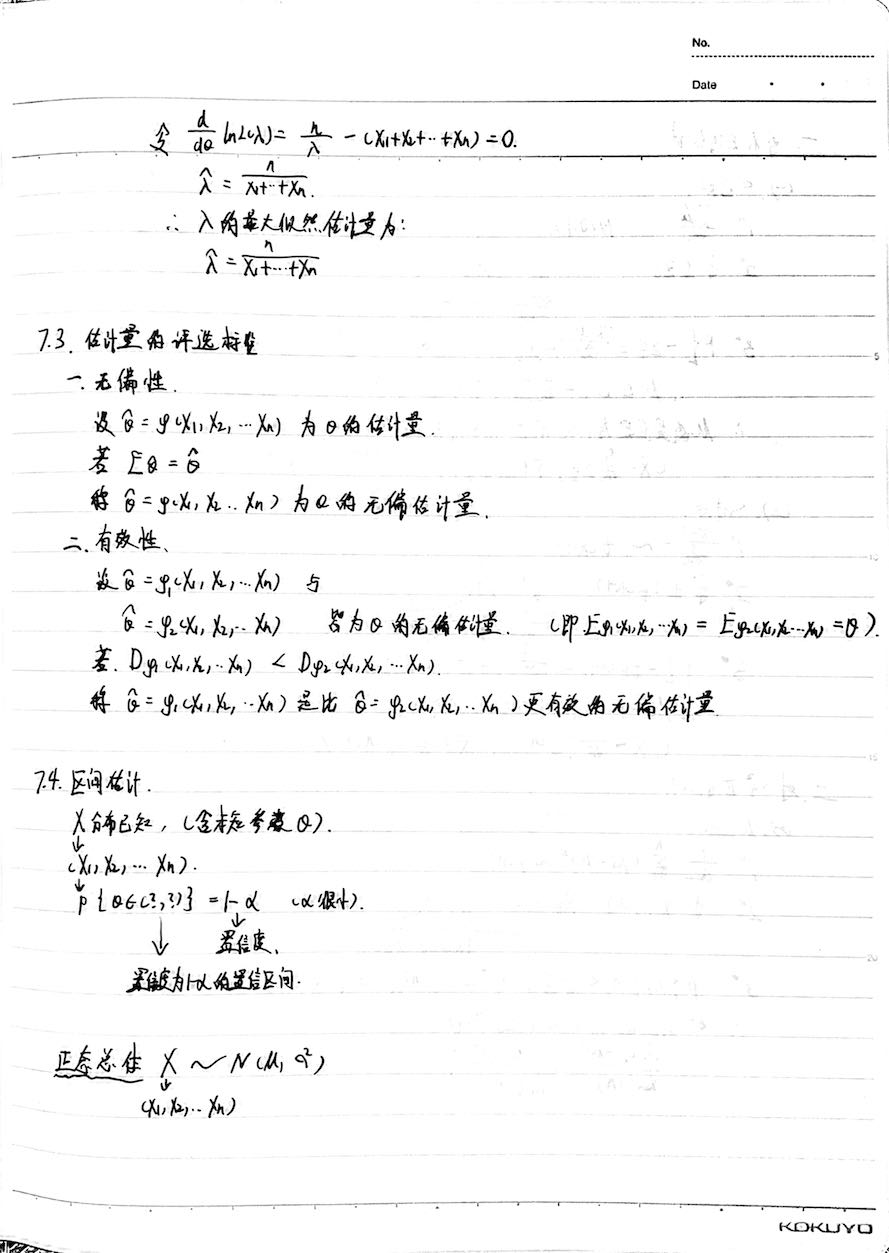 No.
Date
令 d/dθ lnL(λ) = n/λ - (x₁+x₂+…+xₙ) = 0.
λ̂ = n/(x₁+…+xₙ).
∴ λ的最大似然估计量为:
λ̂ = n/(X₁+…+Xₙ)
7.3. 估计量的评选标准
一. 无偏性.
设 θ̂ = φ(X₁, X₂, … Xₙ) 为θ的估计量.
若 Eθ = θ̂
称 θ̂ = φ(X₁, X₂ .. Xₙ) 为θ的无偏估计量.
二. 有效性.
设 θ̂ = φ₁(X₁, X₂, … Xₙ) 与
θ̂ = φ₂(X₁, X₂, … Xₙ) 皆为θ的无偏估计量. (即 Eφ₁(X₁,X₂,…Xₙ) = Eφ₂(X₁,X₂…Xₙ) = θ).
若. Dφ₁(X₁,X₂,…Xₙ) < Dφ₂(X₁,X₂,…Xₙ).
称 θ̂ = φ₁(X₁,X₂,…Xₙ) 是比 θ̂ = φ₂(X₁,X₂,…Xₙ) 更有效的无偏估计量
7.4. 区间估计.
X分布已知, (含未知参数θ).
↓
(X₁, X₂, … Xₙ).
↓
P{θ∈(?,?)} = 1-α (α很小).
↓ ↓
置信度.
置信度为1-α的置信区间.
正态总体 X ~ N(μ, σ²)
↓
(X₁, X₂, … Xₙ)
5
10
15
20
KOKUYO